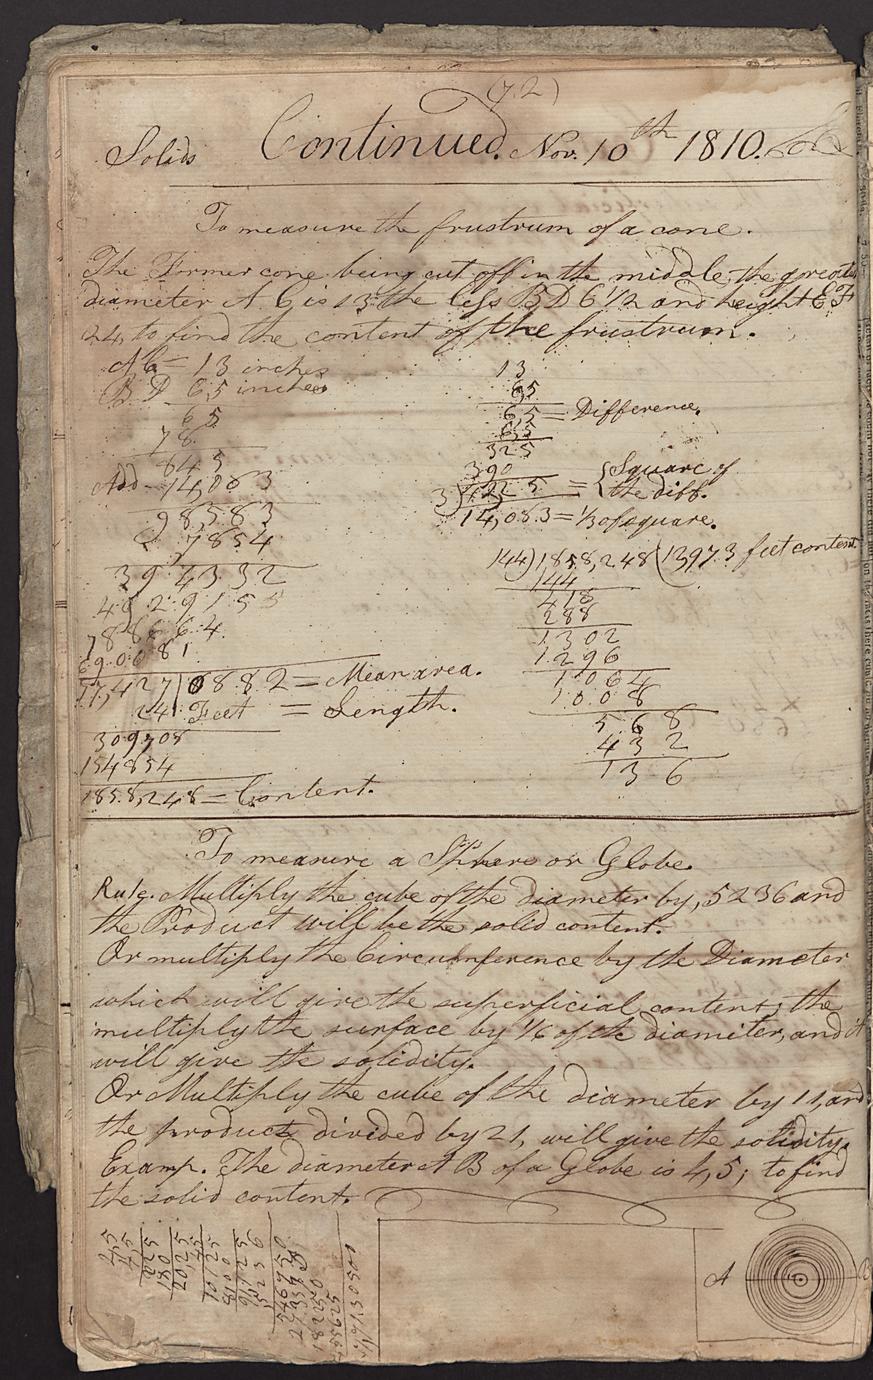 (72)
Solids Continued. Nov. 10th 1810.
To measure the frustrum of a cone.
The Former cone being cut off in the middle the greater
diameter A C is 13 the less B D 6 1/2 and height E F
24, to find the content of the frustrum.
AC = 13 inches
B D 6,5 inches
65
78
84 5
Add 14,083
98583
7854
394332
492915
788664
690081
77,427|0882 = Mean area.
24 Feet = Length.
309708
154854
1858,248 = Content.
13
65
6,5 = Difference.
6,5
325
390
3)42 2 5 = {Square of
the diff.
14,083 = 1/3 of square.
144)1858,248(12,973 feet content
144
418
288
1302
1296
1064
1008
568
432
136
To measure a Sphere or Globe.
Rule. Multiply the cube of the diameter by ,5236 and
the Product will be the solid content.
Or multiply the Circumference by the Diameter
which will give the superficial content; the
multiply the surface by 1/6 of the diameter, and it
will give the solidity.
Or Multiply the cube of the diameter by 11, and
the product divided by 21, will give the solidity.
Examp. The diameter A B of a Globe is 4,5; to find
the solid content.
45
45
225
180
20,25
45
10125
8100
91125
5236
546750
273375
182250
455625
A